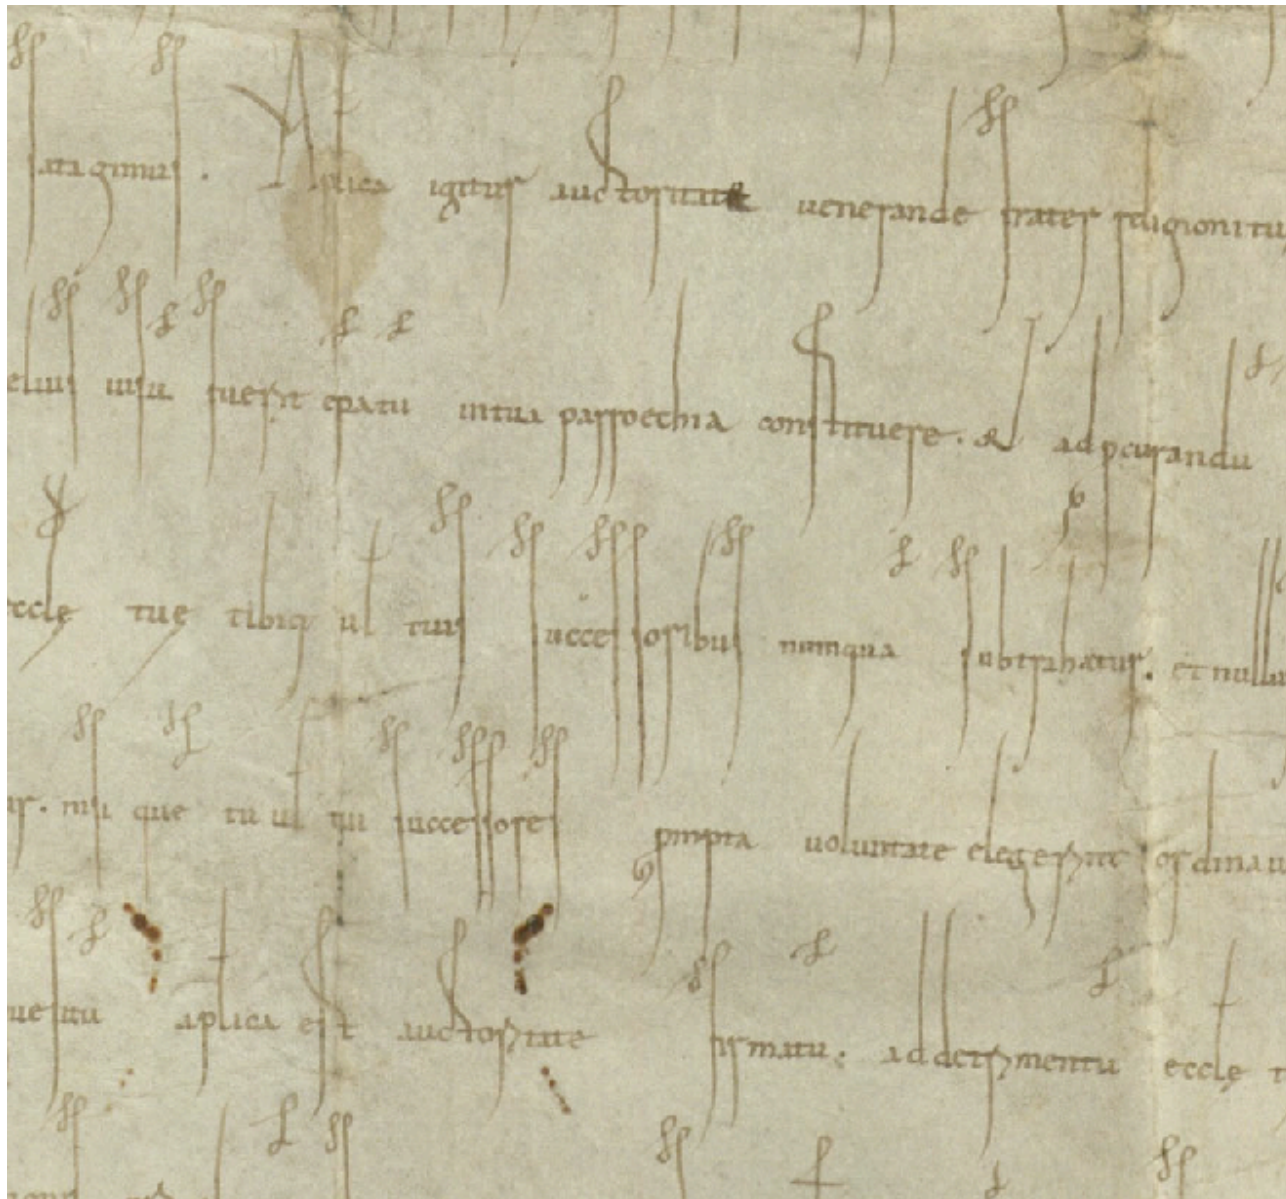 satagimus. Aplica igitur auctoritate venerande frater religioni tu
elius uisu fuerit epatu in tua parroechia constituere. & ad pcurandu
eccle tue tibiq ul tuis successoribus numqua subtrahatur. et nullu
ur. nisi que tu ul tui successores pmpta uoluntate elegerint ordinau
uestitu aplica est auctoritate firmatu. ad detrimentu eccle t